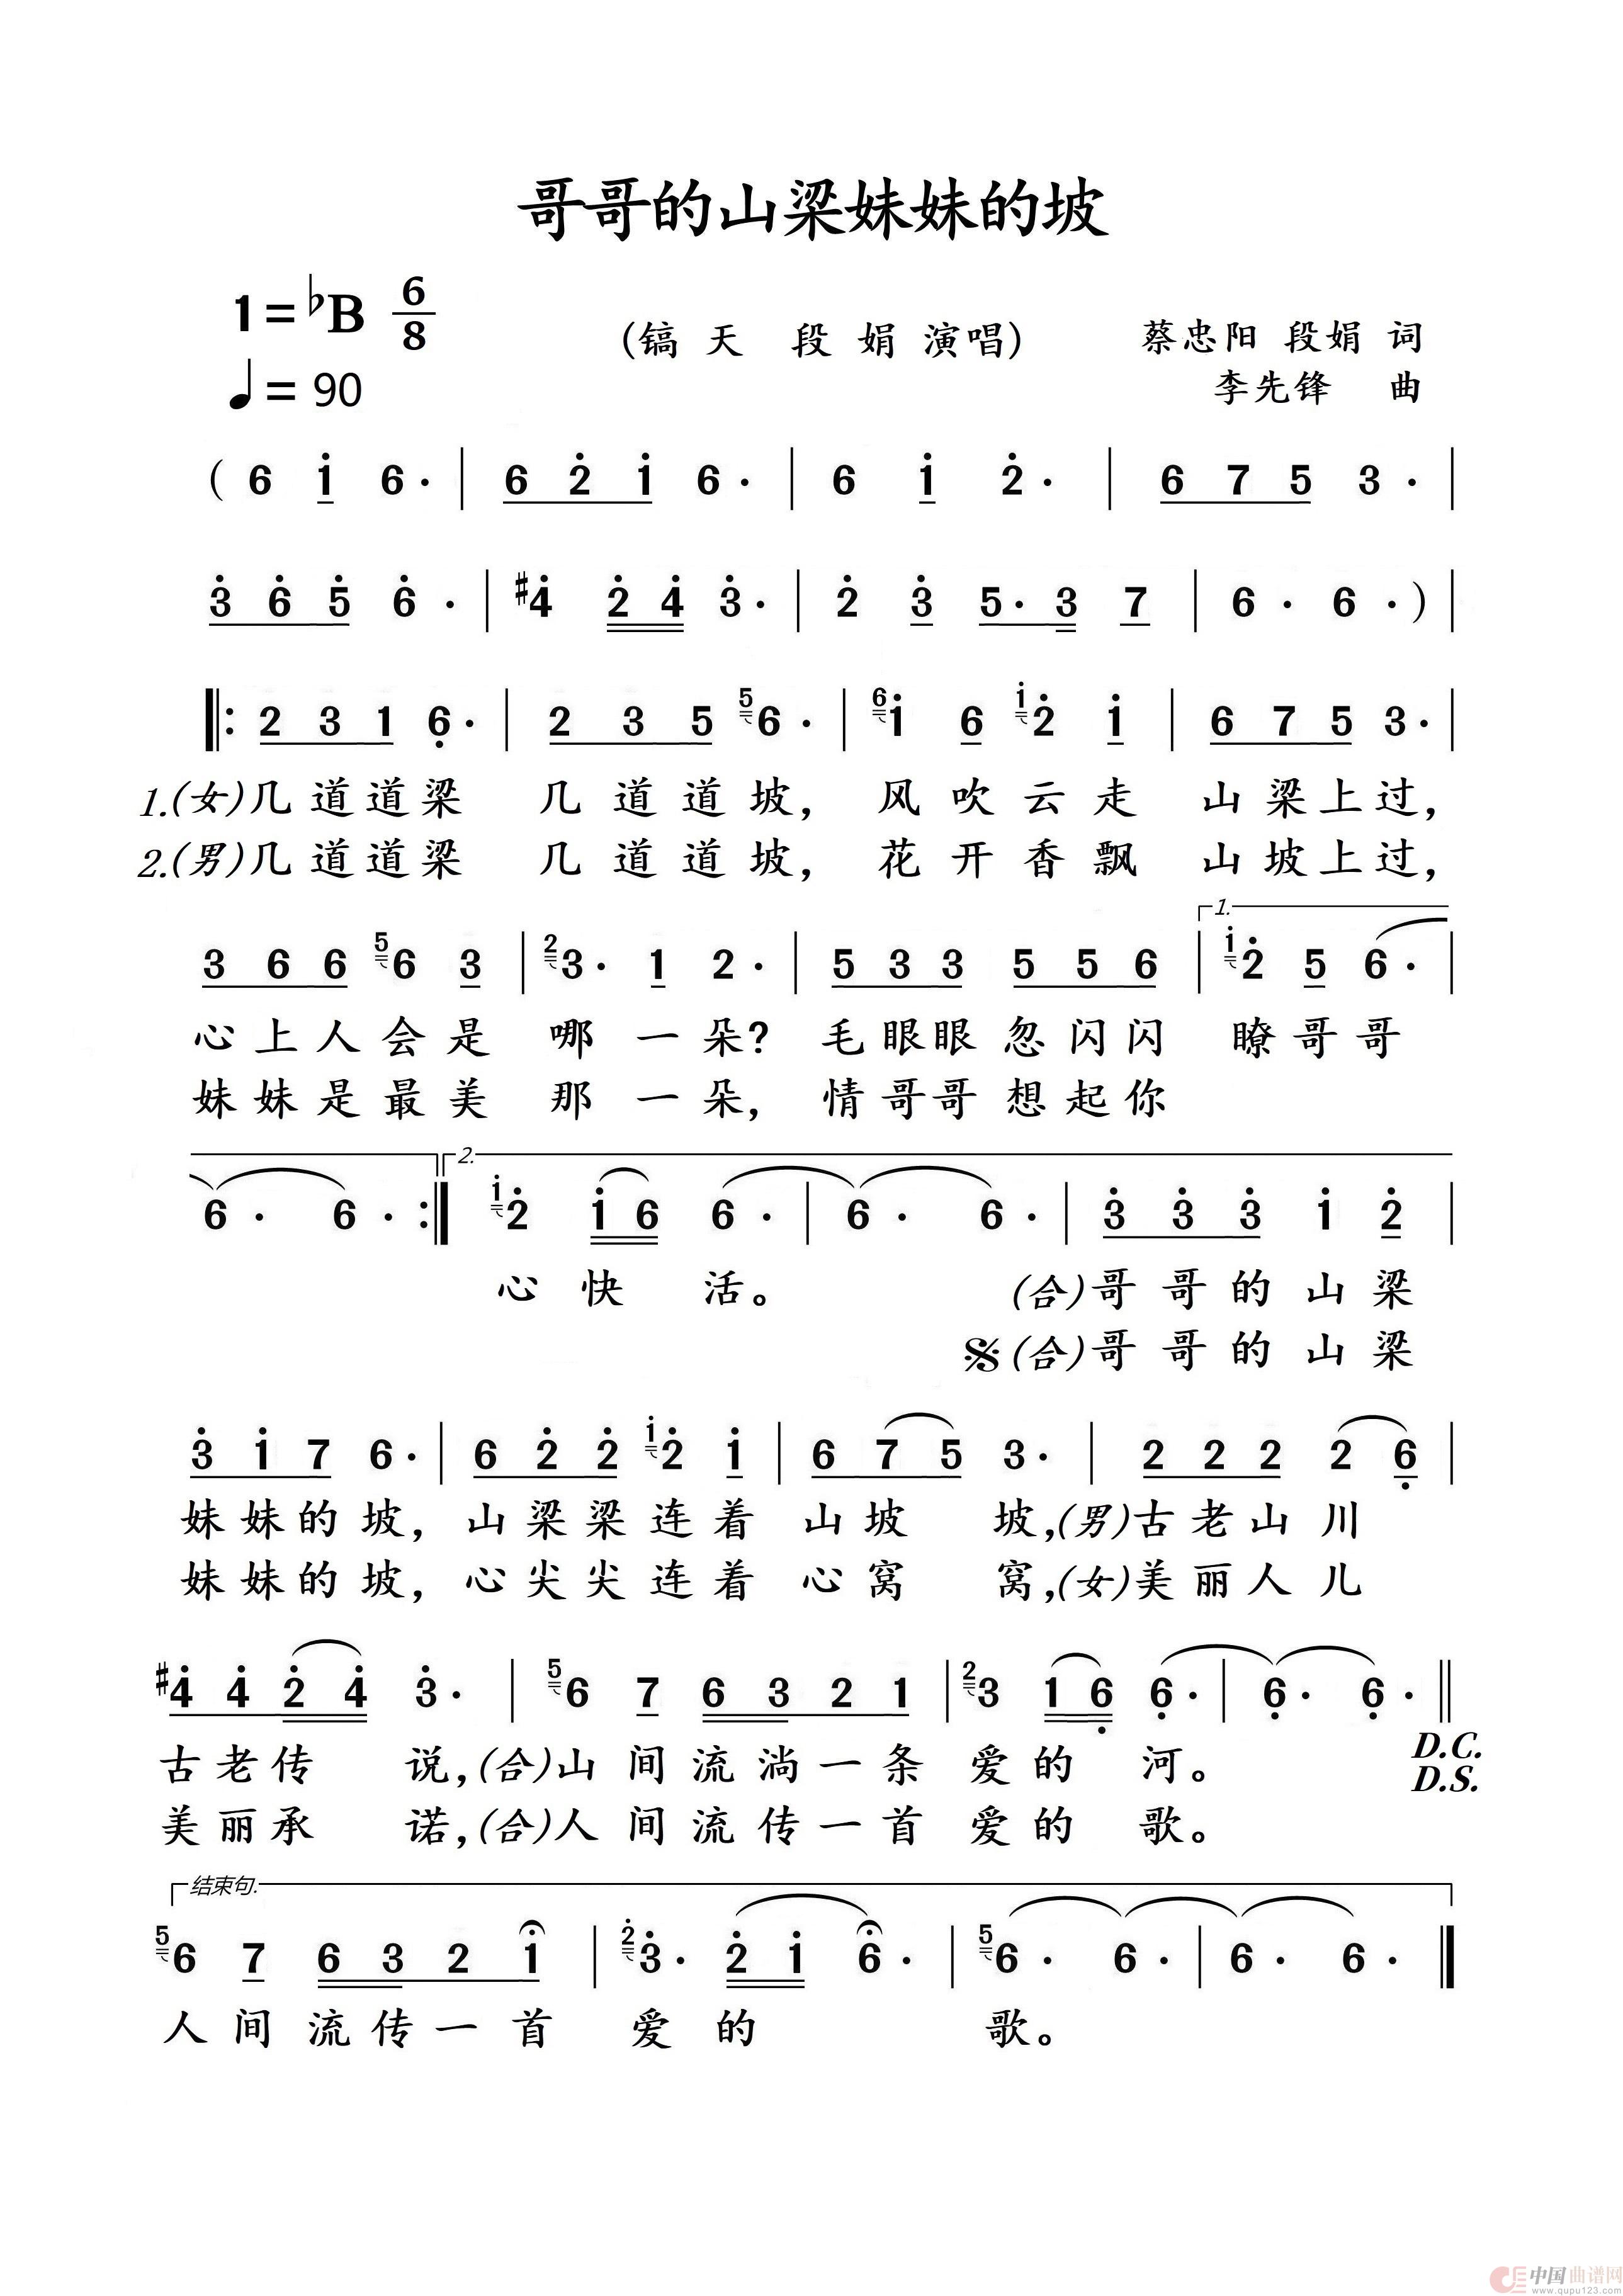 哥哥的山梁妹妹的坡
1=♭B 6/8
♩=90
(镐天 段娟演唱)
蔡忠阳 段娟 词
李先锋 曲
( 6 i 6· | 6 2̇ i 6· | 6 i 2̇· | 6 7 5 3· |
3̇ 6̇ 5̇ 6̇· | #4̇ 2̇ 4̇ 3̇· | 2̇ 3̇ 5· 3 7 | 6· 6· ) |
‖: 2 3 1 6̣· | 2 3 5 5 6· | 6 i 6 i 2̇ i | 6 7 5 3· |
1.(女)几道道梁 几道道坡, 风吹云走 山梁上过,
2.(男)几道道梁 几道道坡, 花开香飘 山坡上过,
1.
3 6 6 5 6 3 | 2 3· 1 2· | 5 3 3 5 5 6 | i 2̇ 5 6· |
心上人会是 哪一朵? 毛眼眼忽闪闪 瞭哥哥
妹妹是最美 那一朵, 情哥哥想起你
2.
6· 6· :‖ i 2̇ i 6 6· | 6· 6· | 3̇ 3̇ 3̇ i 2̇ |
心快活。 (合)哥哥的山梁
(合)哥哥的山梁
3̇ i 7 6· | 6 2̇ 2̇ i 2̇ i | 6 7 5 3· | 2 2 2 2 6̣ |
妹妹的坡, 山梁梁连着 山坡坡,(男)古老山川
妹妹的坡, 心尖尖连着 心窝窝,(女)美丽人儿
#4̇ 4̇ 2̇ 4̇ 3̇· | 5 6 7 6 3 2 1 | 2 3 1 6̣ 6̣· | 6̣· 6̣· ‖
古老传说,(合)山间流淌一条爱的河。
D.C.
D.S.
美丽承诺,(合)人间流传一首爱的歌。
结束句.
5 6 7 6 3 2 i | 2̇ 3̇· 2̇ i 6· | 5 6· 6· | 6· 6· ‖
人间流传一首 爱的 歌。
中国曲谱网
www.qupu123.com